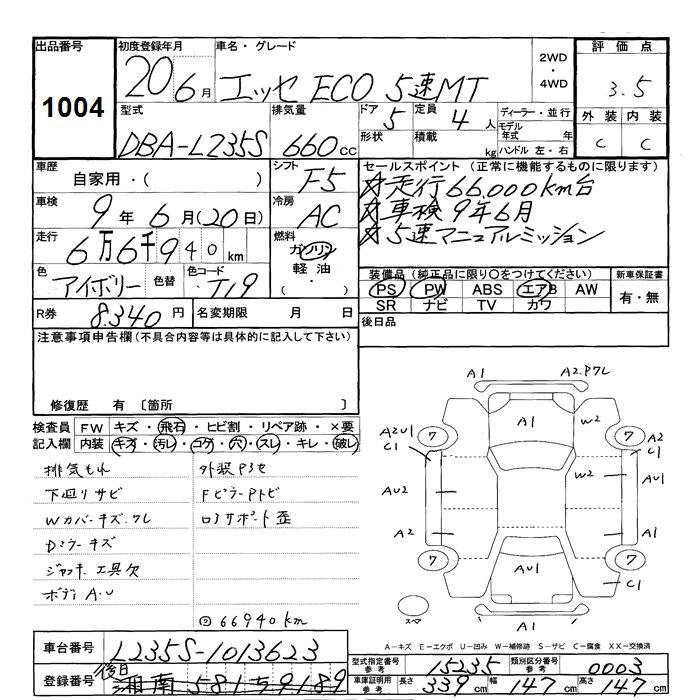 出品番号 初度登録年月 車名・グレード 2WD・4WD 評価点
1004 20 6月 エッセ ECO 5速MT 3.5
型式 排気量 ドア 定員 ディーラー・並行 外装 内装
DBA-L235S 660cc 5 4人 モデル年式 年 C C
形状 積載 kg ハンドル 左・右
車歴 シフト セールスポイント (正常に機能するものに限ります)
自家用・( ) F5 ☆走行66,000km台
車検 冷房 ☆車検9年6月
9年6月(20日) AC ☆5速マニュアルミッション
走行 燃料
6万6千940km ガソリン 軽油 ( ・ )
色 色替 色コード 装備品 (純正品に限り○をつけてください) 新車保証書
アイボリー T19 PS PW ABS エアB AW 有・無
SR ナビ TV カワ
R券 8,340円 名変期限 月 日 後日品
注意事項申告欄(不具合内容等は具体的に記入して下さい)
修復歴 有 〔箇所 〕
検査員 FW キズ・飛石・ヒビ割・リペア跡・×要
記入欄 内装 キズ・汚レ・コゲ・穴・スレ・キレ・破レ
排気もれ 外装P3セ
下廻りサビ FピラーPトビ
Wカバーキズ・ワレ ロアサポート歪
Dミラーキズ
ジャッキ、工具欠
ボディA・U
◎66940km
A1 A2.Pワレ
A1 W2
A2U1 7 7 A2
C1 C1
AU2 W2 AU1
A2 A1
7 AU1 7
C1
スマ A1
A-キズ E-エクボ U-凹み W-補修跡 S-サビ C-腐食 XX-交換済
車台番号 L235S-1013623
登録番号 後日 湘南 581 59189
型式指定番号 参考 15235 類別区分番号 参考 0003
車庫証明用 参考 長さ 339cm 幅 147cm 高さ 147cm